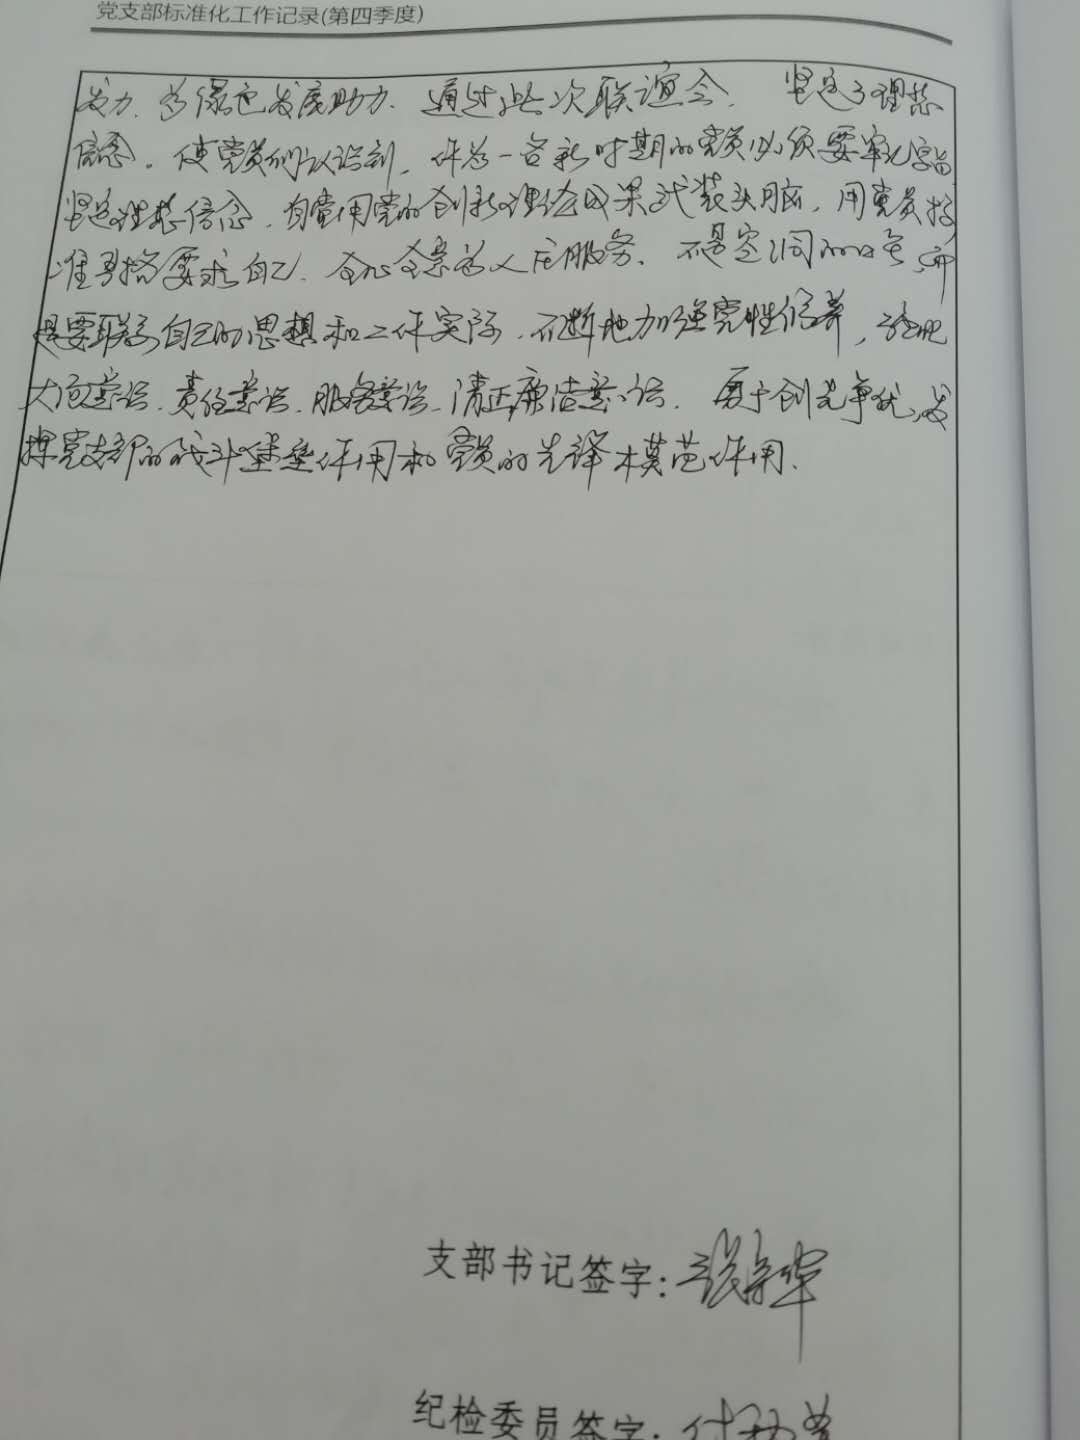 党支部标准化工作记录(第四季度)
发力,为绿色发展助力。通过此次联谊会,坚定了理想
信念。使党员们认识到,作为一名新时期的党员必须要牢记宗旨
坚定理想信念,自觉用党的创新理论成果武装头脑,用党员标
准严格要求自己,全心全意为人民服务。不是空洞的口号,而
是要联系自己的思想和工作实际,不断地加强党性修养,强化
大局意识、责任意识、服务意识、清正廉洁意识,勇于创先争优,发
挥党支部的战斗堡垒作用和党员的先锋模范作用。
支部书记签字:
纪检委员签字: